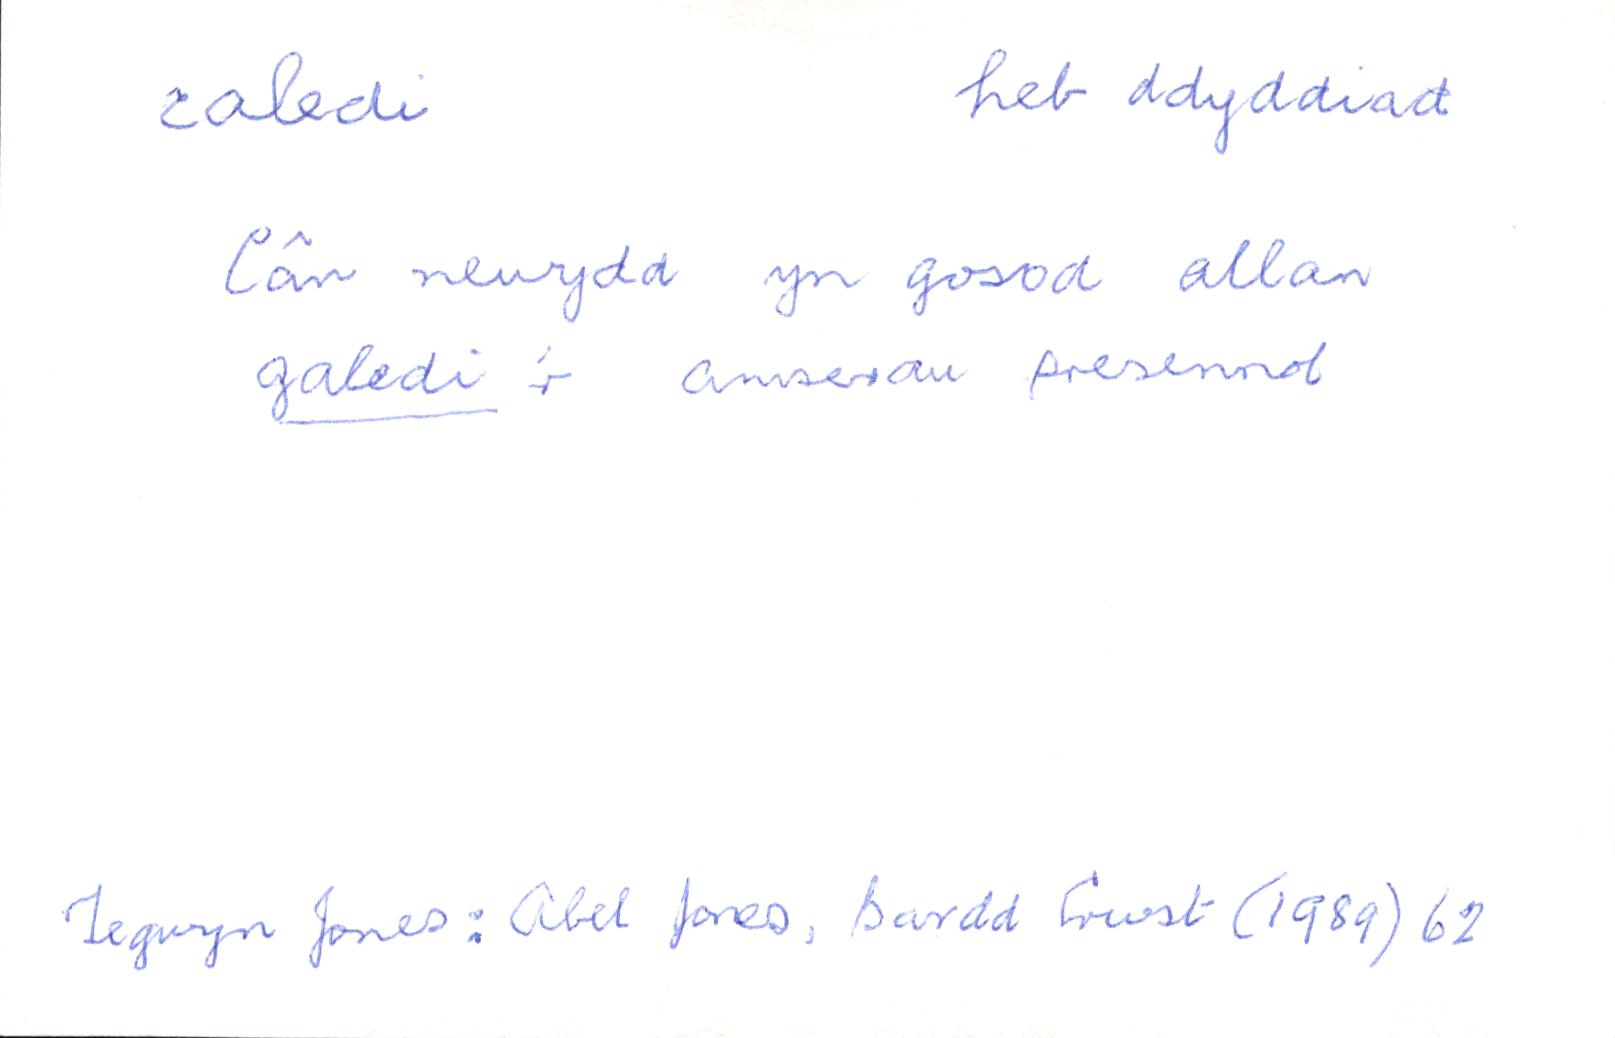 caledi heb ddyddiad
Cân newydd yn gosod allan
galedi 'r amserau presennol
Tegwyn Jones: Abel Jones, Bardd Crwst (1989) 62